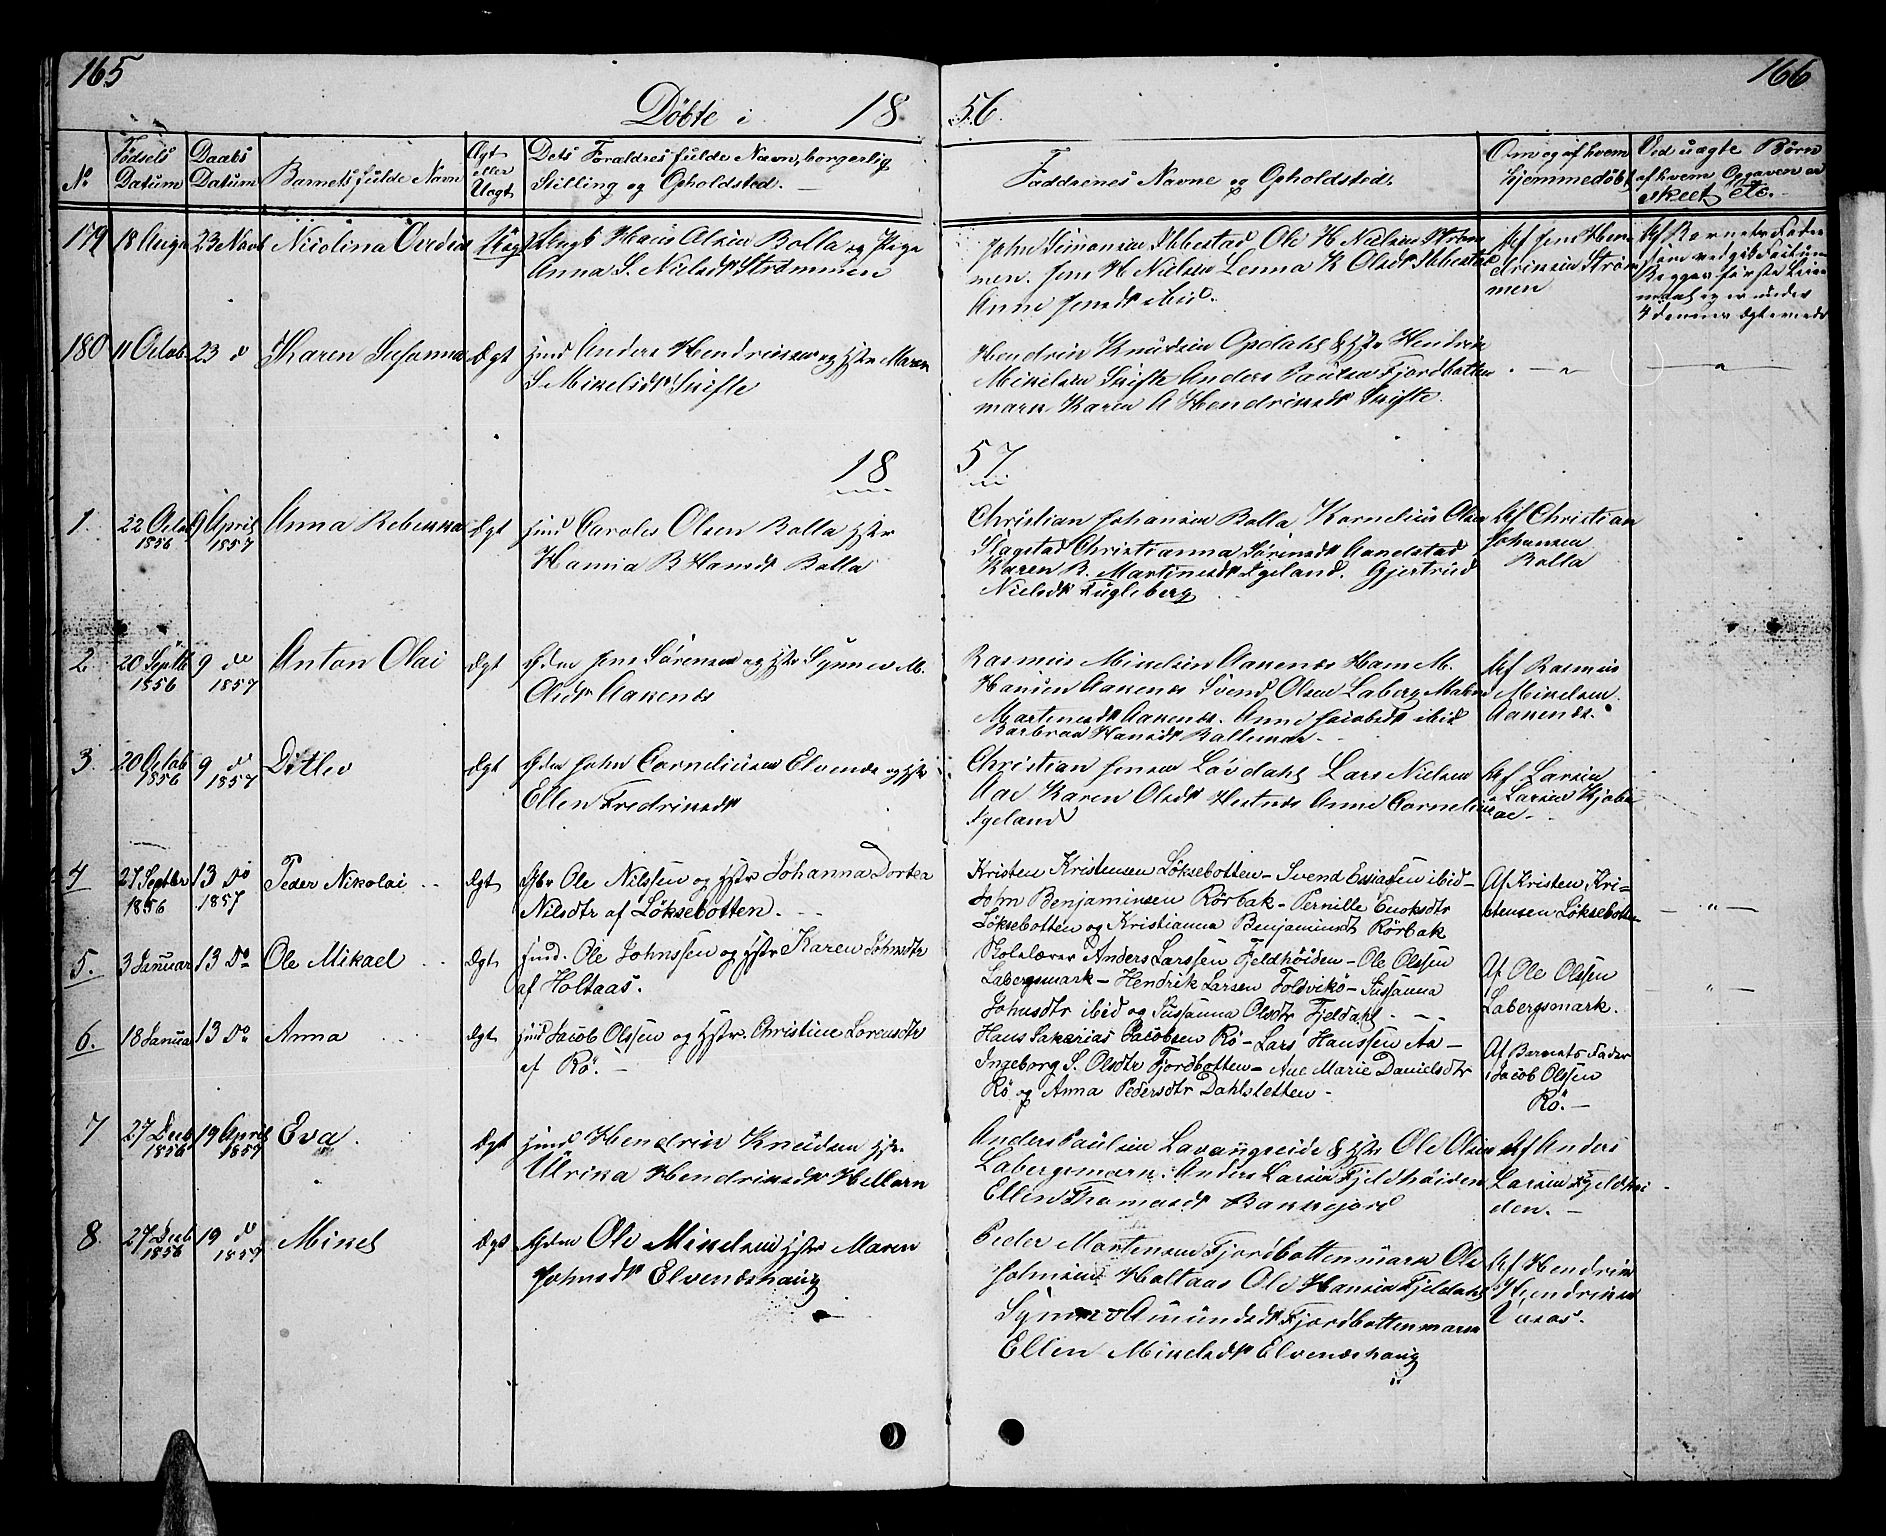 165
166
Döbte i 18 56.
No
Födsels Datum
Daabs Datum
Barnets fulde Navn
Ægt eller Uægt
Dets Forældres fulde Navn, borgerlig
Stilling og Opholdsted. —
Faddrenes Navne og Opholdsted.
Om og af hvem
hjemmedöbt
Ved uægte Børn
af hvem Opgaven er
skeet etc. —
179 18 Aug 23 Novb Nicolina Uægt Ungk Hans Olsen Rolla og Pige
Anna S. Nielsdtr Strømmen
John Simonsen Ibbestad Ole H Nielsen Ström
men. Jens H Nielsen Lenna K Olsdtr Ibbestad
Anne Jensdtr ibid.
Af Jens Hen
driksen Ström
men
Af Barnets Fader
180 11 Octob. 23 d Karen Susanna Ægt Huusd Anders Hendriksen og Hstr Maren
S. Mikelsdtr Skifte
Hendrik Knudsen Opdahl & Hstr Hendrik
Mikelsen Skifte Anders Paulsen Fjordbotten
mark Karen A Hendriksdtr Skifte.
18 57
1. 22 Octob 1856 9 April 1857 Anna Rebekka Ægt Huusd Caroles Olsen Rolla Hstr
Hansdtr Rolla
Christian Johansen Rolla Kornelius Olsen
Slagstad Christianna Sörensdtr Aandstad
Karen R. Martinesdtr Igeland. Gjertrud
Nielsdtr Fugleberg
Af Christian
Johansen
Rolla
2 20 Septb 1856 9 do 1857 Anton Olai Ægt Jens Sörensen og Hstr Synnev M.
Olsdtr Aakenæs
Rasmus Mikelsen Aakenæs Hans M.
Hansen Aakenæs Svend Olsen Laberg Maren
Martinesdtr Aakenæs. Anne Jacobsdtr ibid
Barbroa Hansdtr
Af Rasmus
Mikelsen
Aakenæs.
3. 20 Octob 1856 9 d 1857 Ditlev Ægt John Corneliusen Elvenæs og Hstr
Ellen Fredriksdtr
Christian Jensen Lövdahl Lars Nielsen
Aae Karen Olsdtr Hestnes Anne Cornelius
Igeland
Af Larsen
Larsen
4 27 Septbr 1856 13 Do 1857 Peder Nikolai Ægt Gbr Ole Nilssen og Hstr Johanna Dortea
Nilsdtr af Löksebotten.
Kristen Kristensen Löksebotten – Svend Esaiassen ibid –
John Benjaminsen Rörbak – Pernille Enoksdtr
Löksebotten og Kristianna Benjaminsdtr Rörbak
Af Kristen Kri–
stensen Löksebotten
5. 3 Januar 13 Do Ole Mikael Ægt Huusd. Ole Johnssen og Hstr Karen Johnsdtr
af Holtaas.
Skolelærer Anders Larssen Fjeldhöiden – Ole Olssen
Labergsmark – Hendrik Larsen Foldvikö – Susanna
Johnsdtr ibid og Susanna Olsdtr Fjeldahl
Af Ole Olssen
Labergsmark.
6. 18 Januar 13 Do Anna Ægt Huusd Jacob Olssen og Hstr. Christine Lorensdtr
af Rö. –
Hans Sakarias Jacobsen Rö – Lars Hanssen Aa –
Ingeborg S. Olsdtr Fjordbotten – Ane Marie Danielsdtr
Rö og Anna Pedersdtr Dahlsletten –
Af Barnets Fader
Jacob Olssen
Rö. –
7 27 Decb 1856 19 April 1857 Eva. Ægt Huusd Hendrik Knudsen Hstr.
Ulrika Hendriksdtr Hellarn
Anders Paulsen Lavangseide & Hstr Ole Olsen
Labergsmark. Anders Larsen Fjeldhöiden
Ellen Thomasdtr
Af Anders
Larsen Fjeldhöi
den. –
8. 27 Decb 1856 19 d 1857 Mikel Ægt Ole Mikelsen Hstr Maren
Johnsdtr Elvenæshaug
Peder Mortensen Fjordbottenmark Ole
Johnsen Holtaas Ole Hansen Fjeldahl
Synnev Amundsdtr Fjordbottenmark
Ellen Mikelsdtr Elvenæshaug
Af Hendrik
Hendriksen